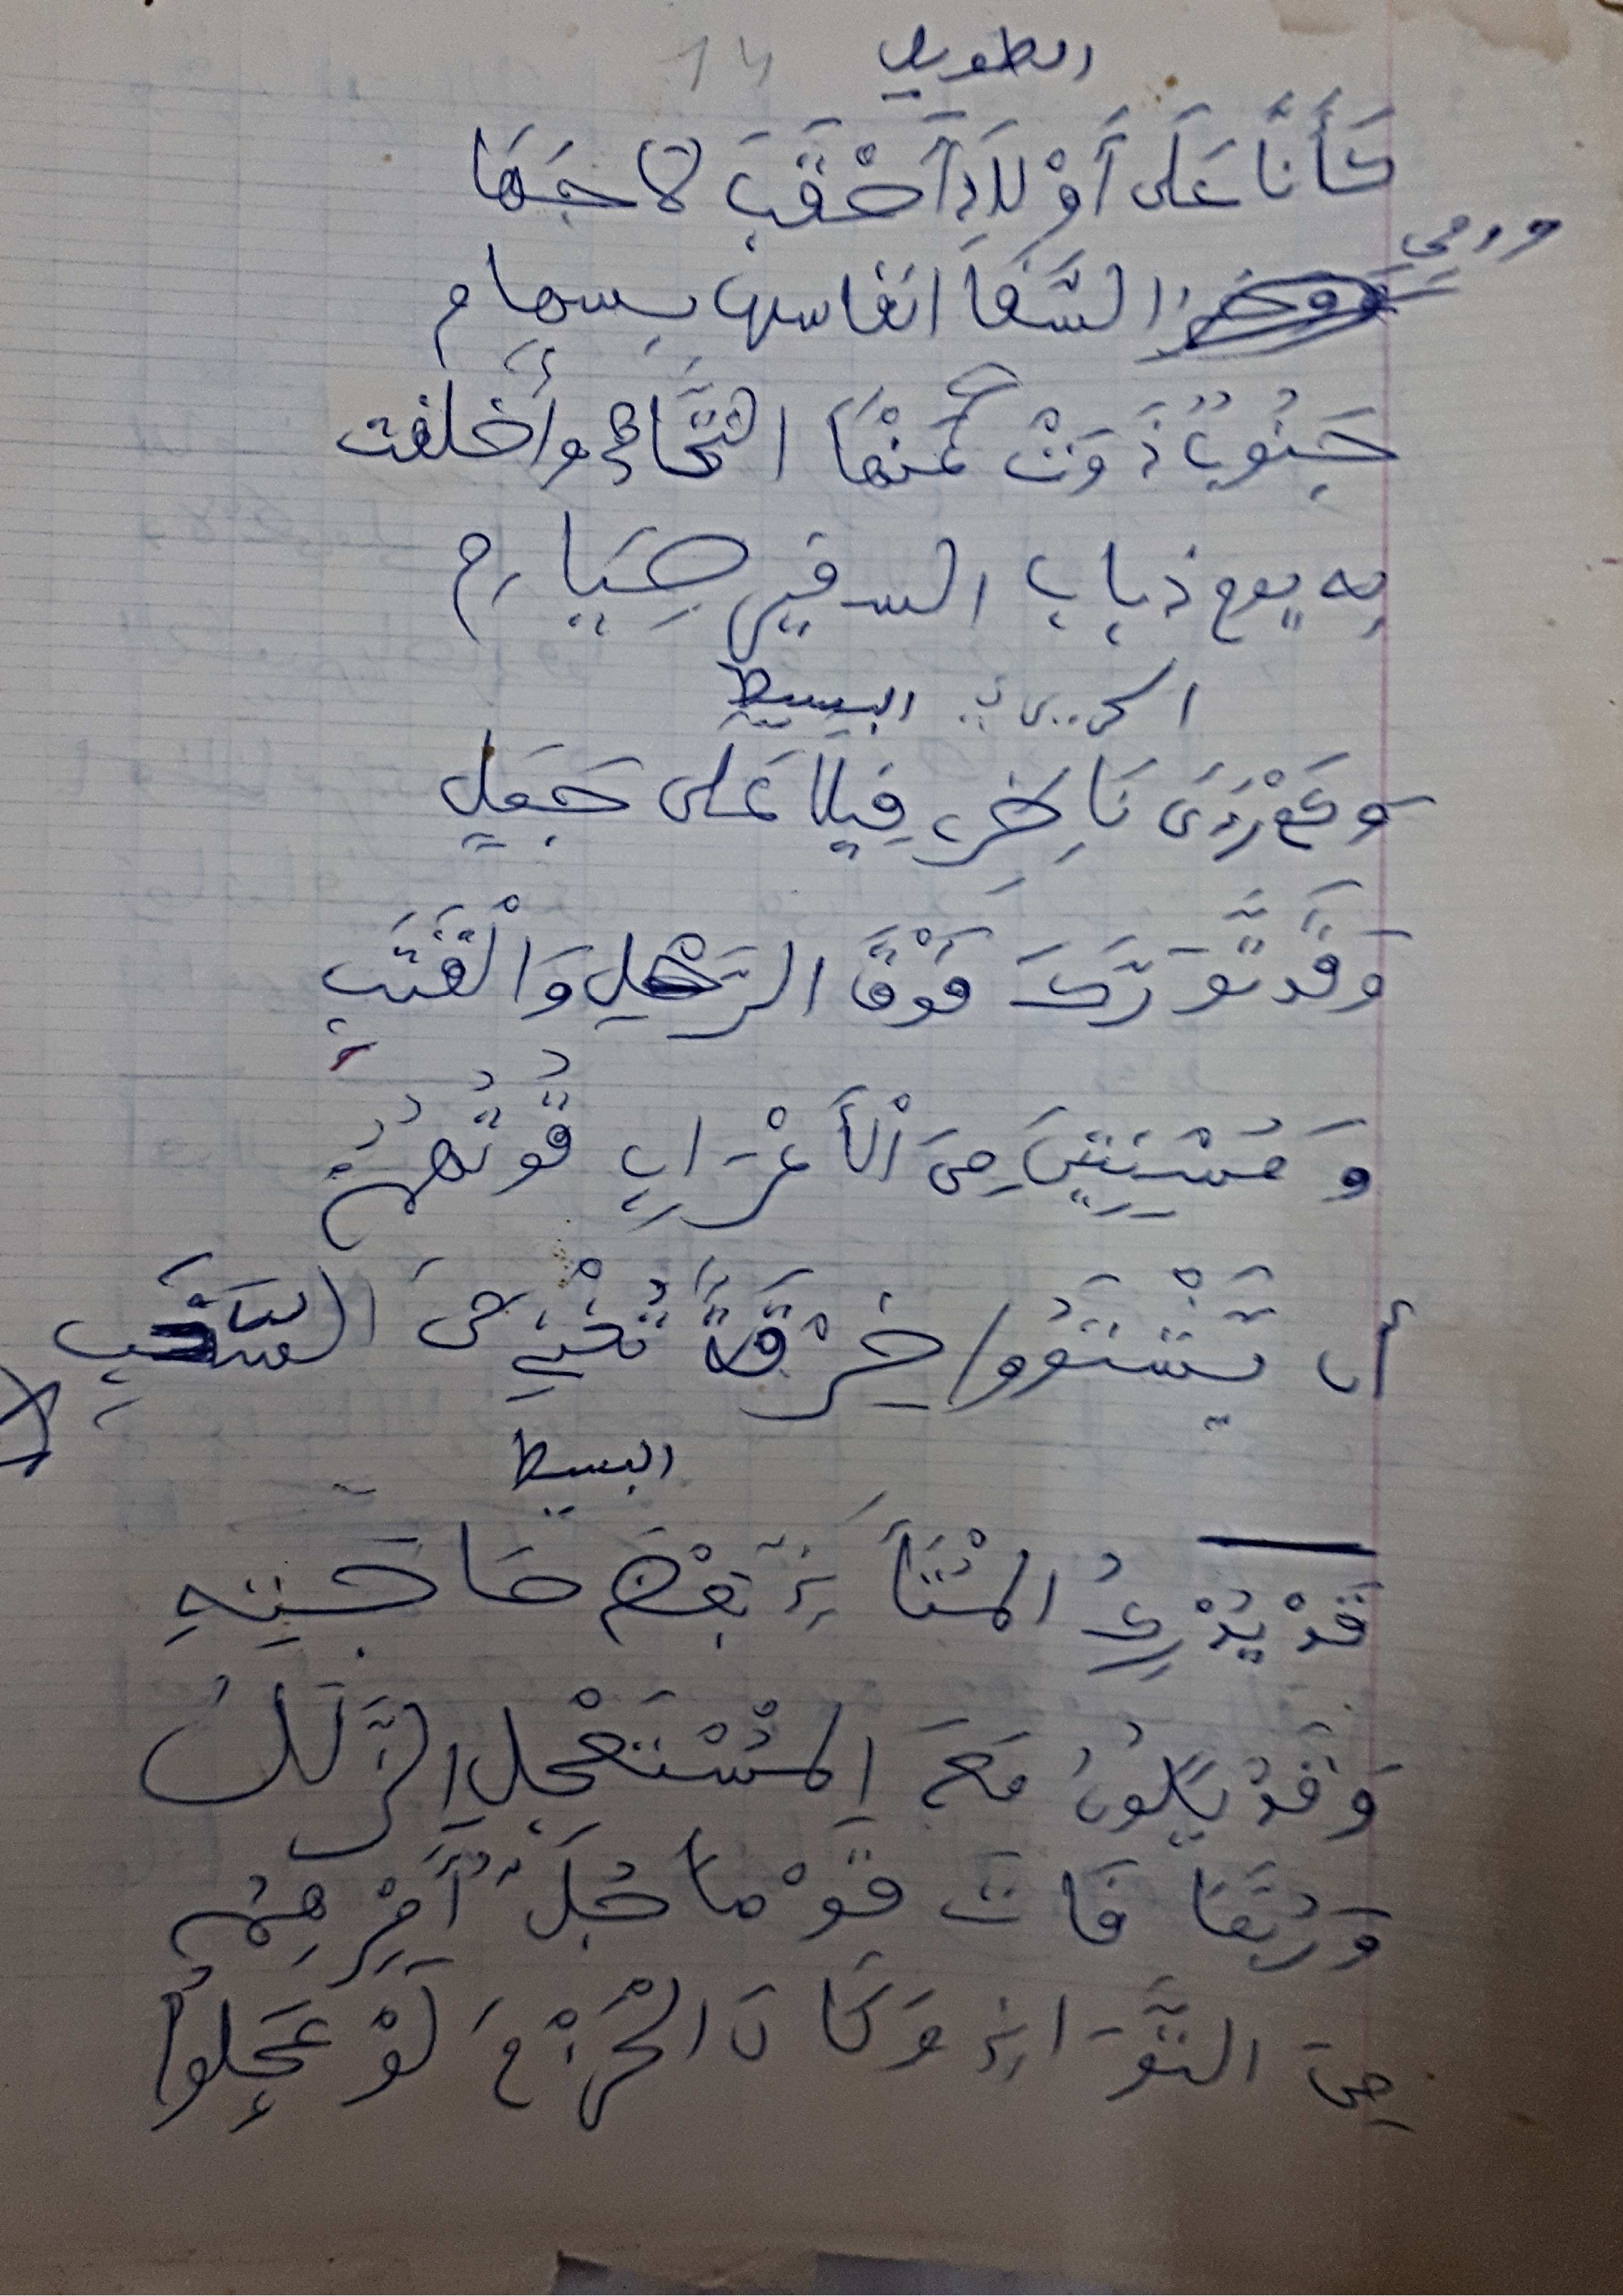 14 الطويل
كَأَنَّا عَلَى أَوْلَادِ أَحْقَبَ لَاحَهَا
ورمي
السَّفَا انفاسها بسهام
جَنُوبٌ ذَوَتْ عَنْهَا التَّنَاهِي وأَخلفت
به يوم ذباب السفير صِيَام
البسيط
نَاخِرٍ فِيلًا عَلَى جَعَلٍ
وَقَد تَّوَرَّكَ فَوْقَ الرَّحْلِ وَالْقَتَبِ
وَمُسْنِتِينَ مِنَ الْأَعْرَابِ قُوتُهُمُ
أن يَّشْتَوُوا خِرْقَةً تُغْنِي مِنَ السَّغَبِ
البسيط
قَدْ يُدْرِكُ الْمُتَأَنِّي بَعْضَ حَاجَتِهِ
وَقَدْ يَكُونُ مَعَ الْمُسْتَعْجِلِ الزَّلَلُ
وَرُبَّمَا فَاتَ قَوْمًا جُلُّ أَمْرِهِمُ
مِنَ التَّوَانِي وَكَانَ الْحَزْمَ لَوْ عَجِلُوا